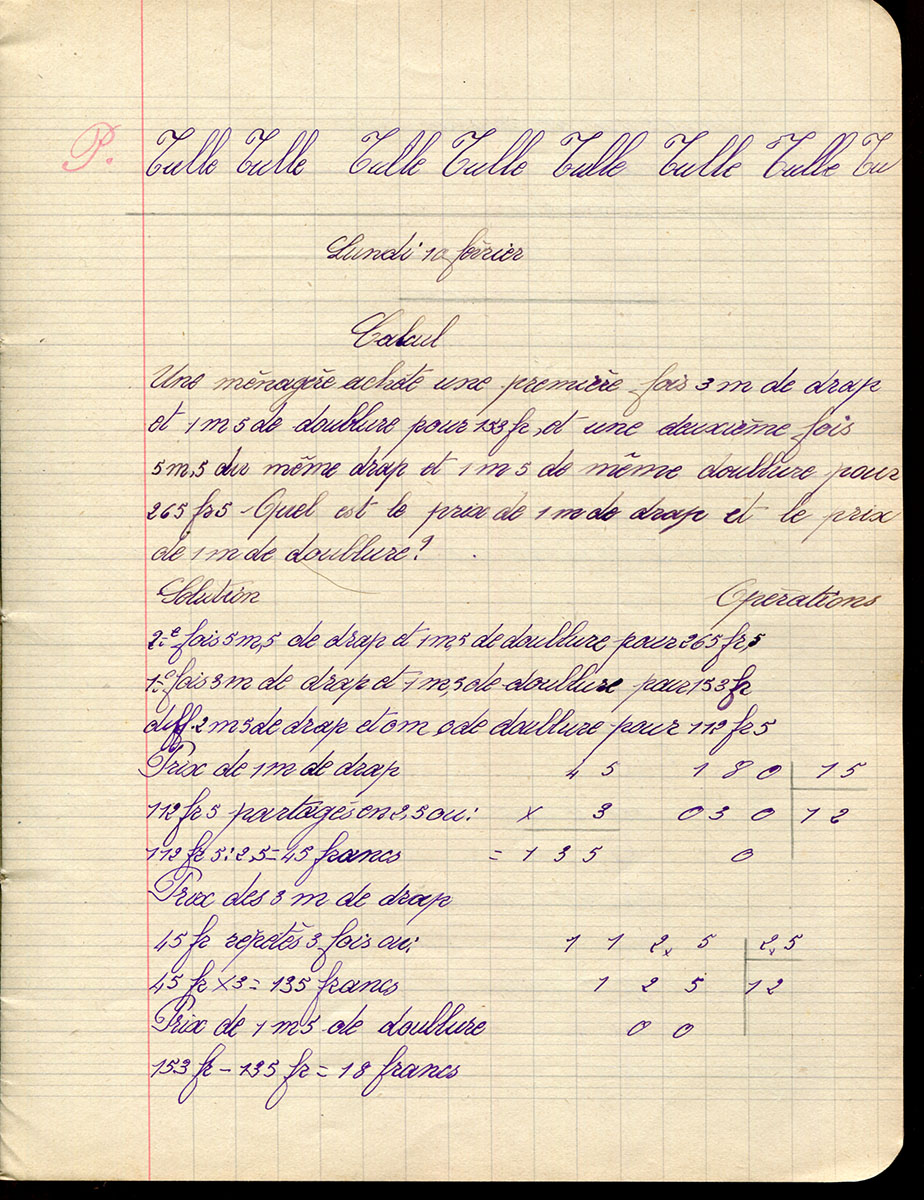 P. Tulle Tulle Tulle Tulle Tulle Tulle Tulle Tu
Lundi 10 février
Calcul
Une ménagère achète une première fois 3 m de drap
et 1 m 5 de doublure pour 153 fr, et une deuxième fois
5 m, 5 du même drap et 1 m 5 de même doublure pour
265 fr 5 - Quel est le prix de 1 m de drap et le prix
de 1 m de doublure ?
Solution Opérations
2e fois 5 m, 5 de drap et 1 m, 5 de doublure pour 265 fr, 5
1e fois 3 m de drap et 1 m, 5 de doublure pour 153 fr
diff. 2 m 5 de drap et 0 m 0 de doublure pour 112 fr 5
Prix de 1 m de drap 4 5 1 8 0 1 5
112 fr 5 partagés en 2,5 ou : × 3 0 3 0 1 2
112 fr 5 : 2,5 = 45 francs = 1 3 5 0
Prix des 3 m de drap
45 fr répétés 3 fois ou : 1 1 2, 5 2, 5
45 fr × 3 = 135 francs 1 2 5 1 2
Prix de 1 m 5 de doublure 0 0
153 fr - 135 fr = 18 francs